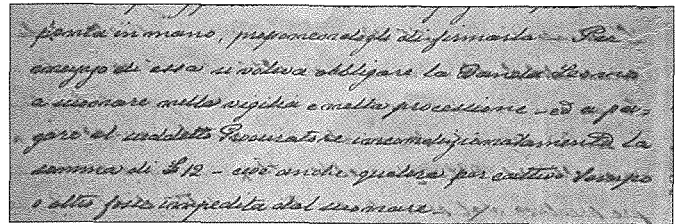 ponta in mano, proponendogli di firmarla. Per
mezzo di essa si voleva obbligare la Banda
a suonare nella vigilia e nella processione - ed a pa-
gare al suddetto Procuratore incondizionatamente la
somma di £ 12 - ciò anche qualora per cattivo tempo
o altro fosse impedita dal suonare.